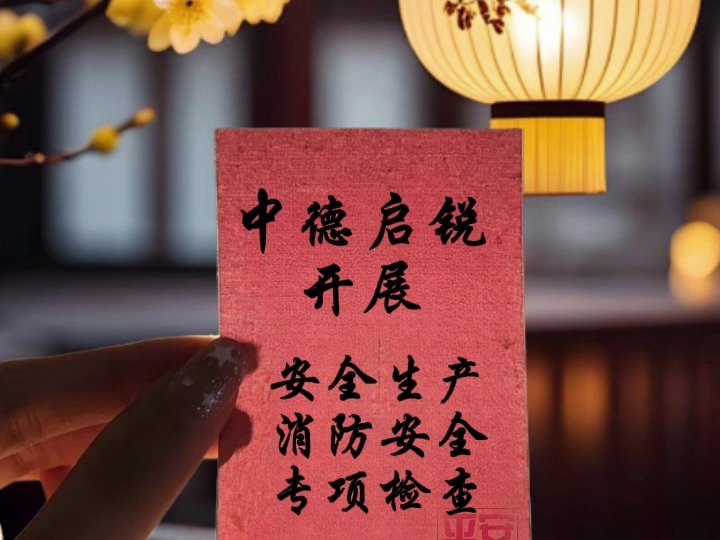 中德启锐
开展
安全生产
消防安全
专项检查
平安